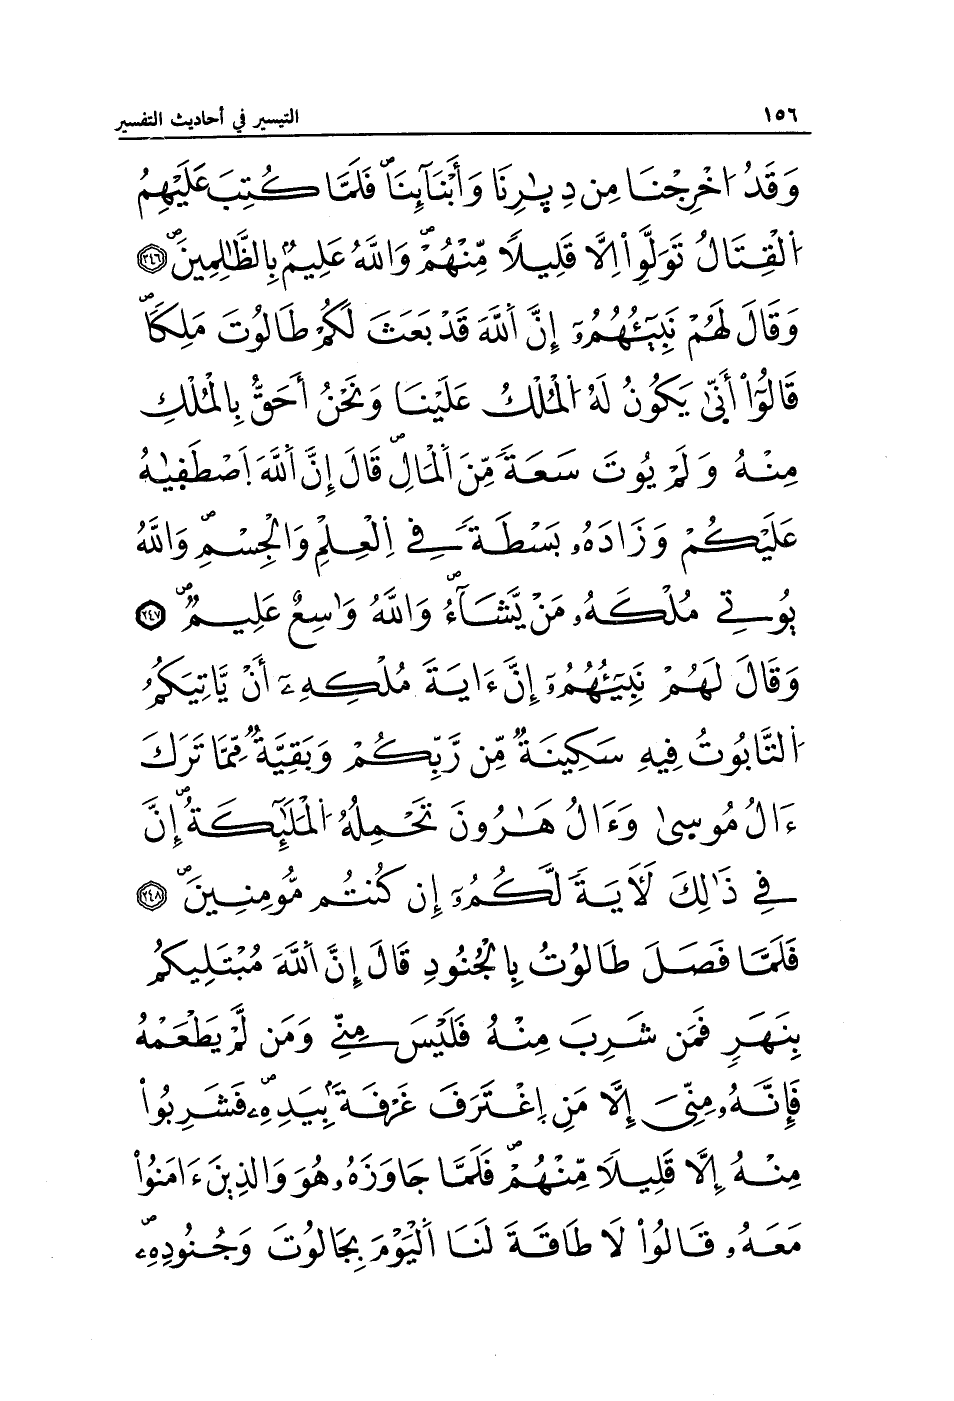 ١٥٦ التيسير في أحاديث التفسير
وَقَدُ اخْرِجْنَا مِن دِيٰرِنَا وَأَبْنَآئِنَاۖ فَلَمَّا كُتِبَ عَلَيْهِمُ
اُلْقِتَالُ تَوَلَّوِاْ اِلَّا قَلِيلًا مِّنْهُمْۖ وَاللَّهُ عَلِيمُۢ بِالظَّٰلِمِينَۖ ٢٤٦
وَقَالَ لَهُمْ نَبِيٓـُٔهُمُۥٓ إِنَّ اَللَّهَ قَدْ بَعَثَ لَكُمْ طَالُوتَ مَلِكاًۖ
قَالُوٓاْ أَنّٰى يَكُونُ لَهُ اُلْمُلْكُ عَلَيْنَا وَنَحْنُ أَحَقُّ بِالْمُلْكِ
مِنْهُ وَلَمْ يُوتَ سَعَةً مِّنَ اَلْمَالِۖ قَالَ إِنَّ اَللَّهَ اَصْطَفِيٰهُ
عَلَيْكُمْ وَزَادَهُۥ بَسْطَةً فِي اِلْعِلْمِ وَالْجِسْمِۖ وَاللَّهُ
يُوتِي مُلْكَهُۥ مَنْ يَّشَآءُۖ وَاللَّهُ وَاسِعٌ عَلِيمٌۖ ٢٤٧
وَقَالَ لَهُمْ نَبِيٓـُٔهُمُۥٓ إِنَّ ءَايَةَ مُلْكِهِۦٓ أَنْ يَّاتِيَكُمُ
اُلتَّابُوتُ فِيهِ سَكِينَةٌ مِّن رَّبِّكُمْ وَبَقِيَّةٌ مِّمَّا تَرَكَ
ءَالُ مُوسٖىٰ وَءَالُ هَٰرُونَ تَحْمِلُهُ اُلْمَلَٰٓئِكَةُۖ إِنَّ
فِي ذَٰلِكَ لَأَيَةً لَّكُمُۥٓ إِن كُنتُم مُّومِنِينَۖ ٢٤٨
فَلَمَّا فَصَلَ طَالُوتُ بِالْجُنُودِ قَالَ إِنَّ اَللَّهَ مُبْتَلِيكُم
بِنَهَرٍ فَمَن شَرِبَ مِنْهُ فَلَيْسَ مِنِّي وَمَن لَّمْ يَطْعَمْهُ
فَإِنَّهُۥ مِنِّيَ إِلَّا مَنِ اِغْتَرَفَ غَرْفَةَۢ بِيَدِهِۦۖ فَشَرِبُواْ
مِنْهُ إِلَّا قَلِيلًا مِّنْهُمْۖ فَلَمَّا جَاوَزَهُۥ هُوَ وَالذِينَ ءَامَنُواْ
مَعَهُۥ قَالُواْ لَا طَاقَةَ لَنَا اَلْيَوْمَ بِجَالُوتَ وَجُنُودِهِۦۖ